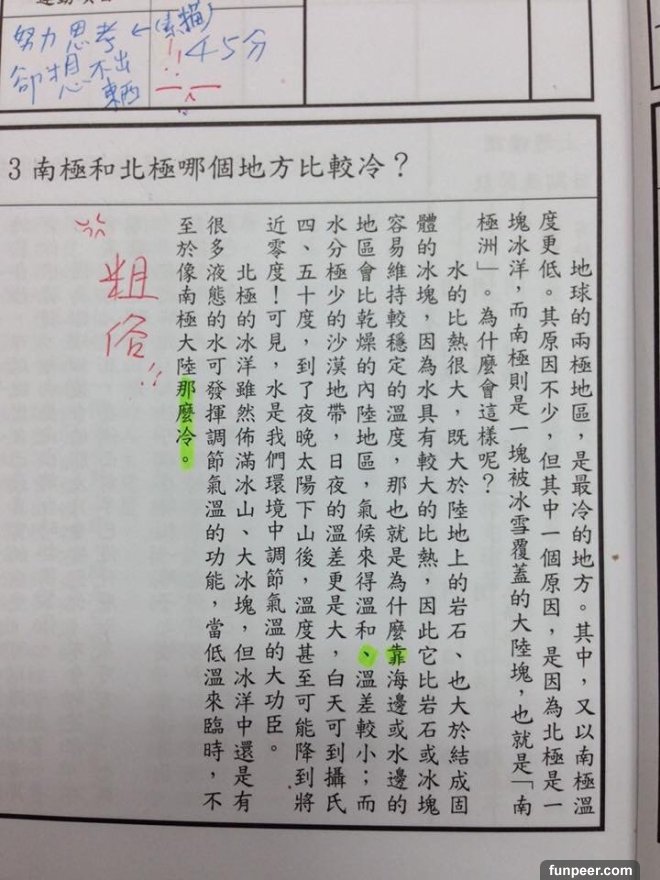 努力思考←(素描)
卻想不出
東西
!! 45分
3 南極和北極哪個地方比較冷？
地球的兩極地區，是最冷的地方。其中，又以南極溫
度更低。其原因不少，但其中一個原因，是因為北極是一
塊冰洋，而南極則是一塊被冰雪覆蓋的大陸塊，也就是「南
極洲」。為什麼會這樣呢？
水的比熱很大，既大於陸地上的岩石、也大於結成固
體的冰塊，因為水具有較大的比熱，因此它比岩石或冰塊
容易維持較穩定的溫度，那也就是為什麼靠海邊或水邊的
地區會比乾燥的內陸地區，氣候來得溫和、溫差較小；而
水分極少的沙漠地帶，日夜的溫差更是大，白天可到攝氏
四、五十度，到了夜晚太陽下山後，溫度甚至可能降到將
近零度！可見，水是我們環境中調節氣溫的大功臣。
北極的冰洋雖然佈滿冰山、大冰塊，但冰洋中還是有
很多液態的水可發揮調節氣溫的功能，當低溫來臨時，不
至於像南極大陸那麼冷。
粗俗!!
funpeer.com